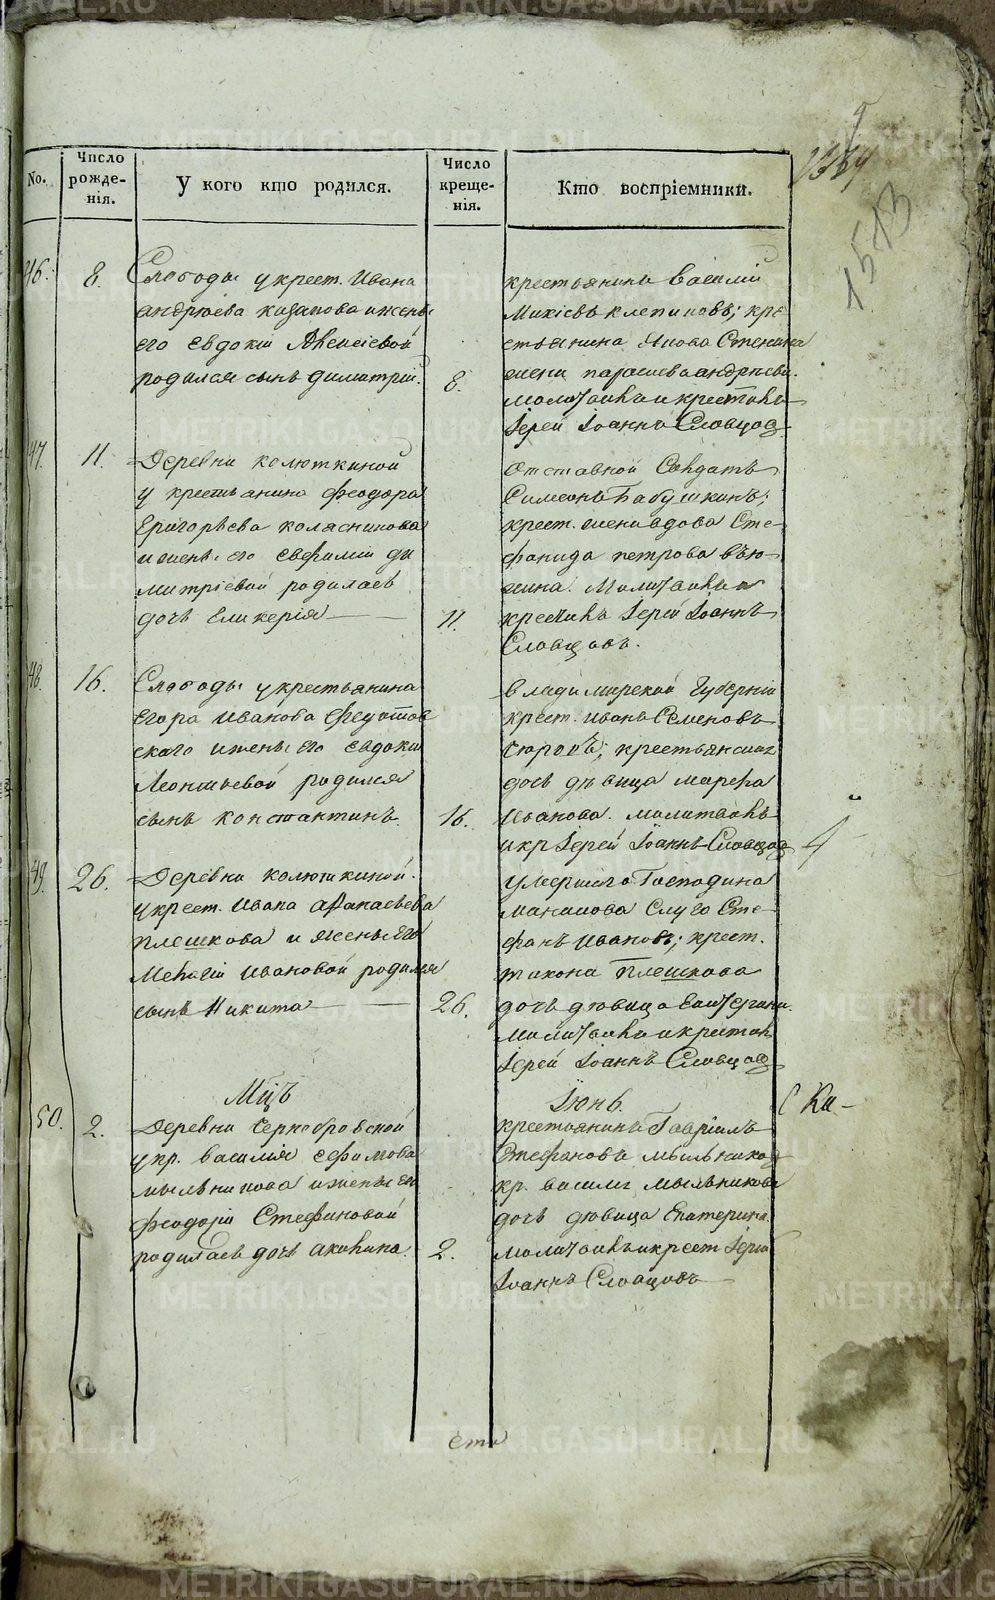 №.
Число рожде-нія.
У кого кто родился.
Число креще-нія.
Кто воспріемники.
1513
46.
8.
Слободы у крест. Ивана
андреева казанова и жены
его Евдокіи Алексіевой
родился сынъ димитрій.
8.
крестьянинъ василій
Михіевъ клепиковъ; кре
стьянина Якова
жена параскева андреева.
молитвилъ и крестилъ
Іерей Іоаннъ Словцов
47.
11.
Деревни колюткиной
у крестьянина феодора
Григорьева колясникова
и жены его Евфиміи ди
митріевой родилась
дочь Гликерія
11.
отставной Солдатъ
Симеонъ Бабушкинъ;
крест. жена вдова Сте-
фанида петрова
молитвилъ и
крестилъ Іерей Іоаннъ
Словцовъ.
48.
16.
Слободы у крестьянина
Егора иванова федотов
скаго и жены его евдокіи
Леонтьевой родился
сынъ константинъ.
16.
владимирской Губерніи
крест. иванъ Семеновъ
крестьянская
дочь дѣвица марфа
иванова. молитвилъ
и кр Іерей Іоаннъ Словцов
49.
26.
Деревни колюткиной
у крест. ивана афанасьева
плешкова и жены его
ивановой родился
сынъ Никита
26.
умершаго Господина
Слуга Сте-
фанъ ивановъ; крест.
тихона Плешкова
дочь дѣвица
молитвилъ и крестилъ
Іерей Іоаннъ Словцов
Мцъ
Іюнь.
50.
2.
Деревни Чернобровской
у кр. василія ефимова
мыльникова и жены ег
феодоріи Стефановой
родилась дочь акилина.
2.
крестьянинъ Гавріилъ
Стефановъ мыльников
кр. василія мыльникова
дочь дѣвица Екатерина.
молитвилъ и крест Іерей
Іоаннъ Словцовъ
METRIKI.GASO-URAL.RU